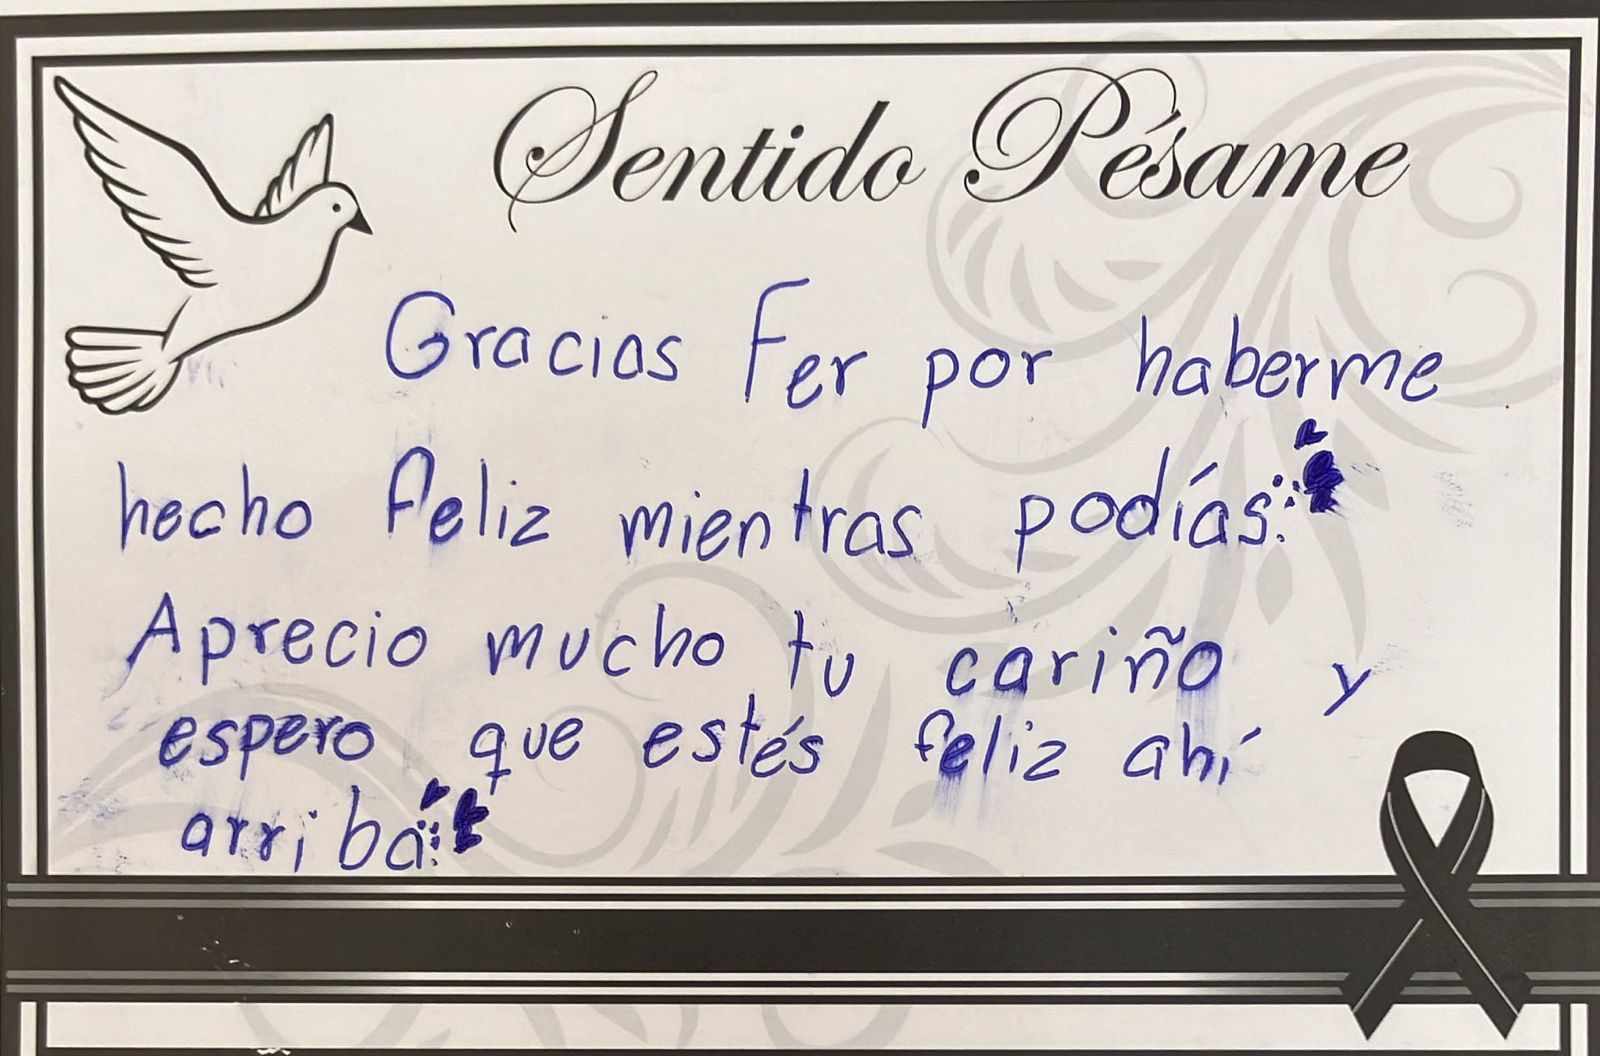 Sentido Pésame
Gracias Fer por haberme
hecho feliz mientras podías.
Aprecio mucho tu cariño y
espero que estés feliz ahí
arriba.